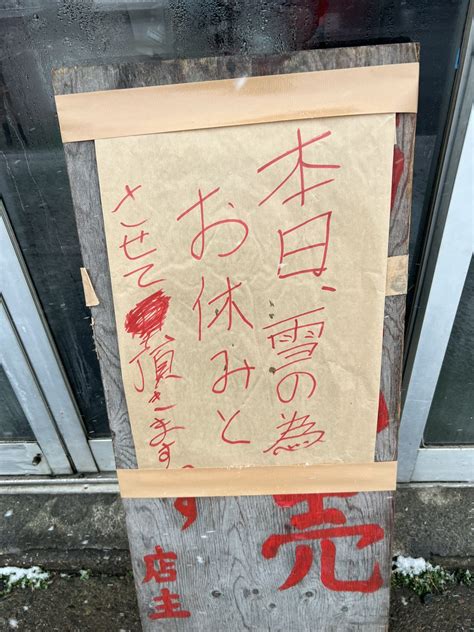 本日、雪の為
お休みと
させて頂きます。
売
す
店主